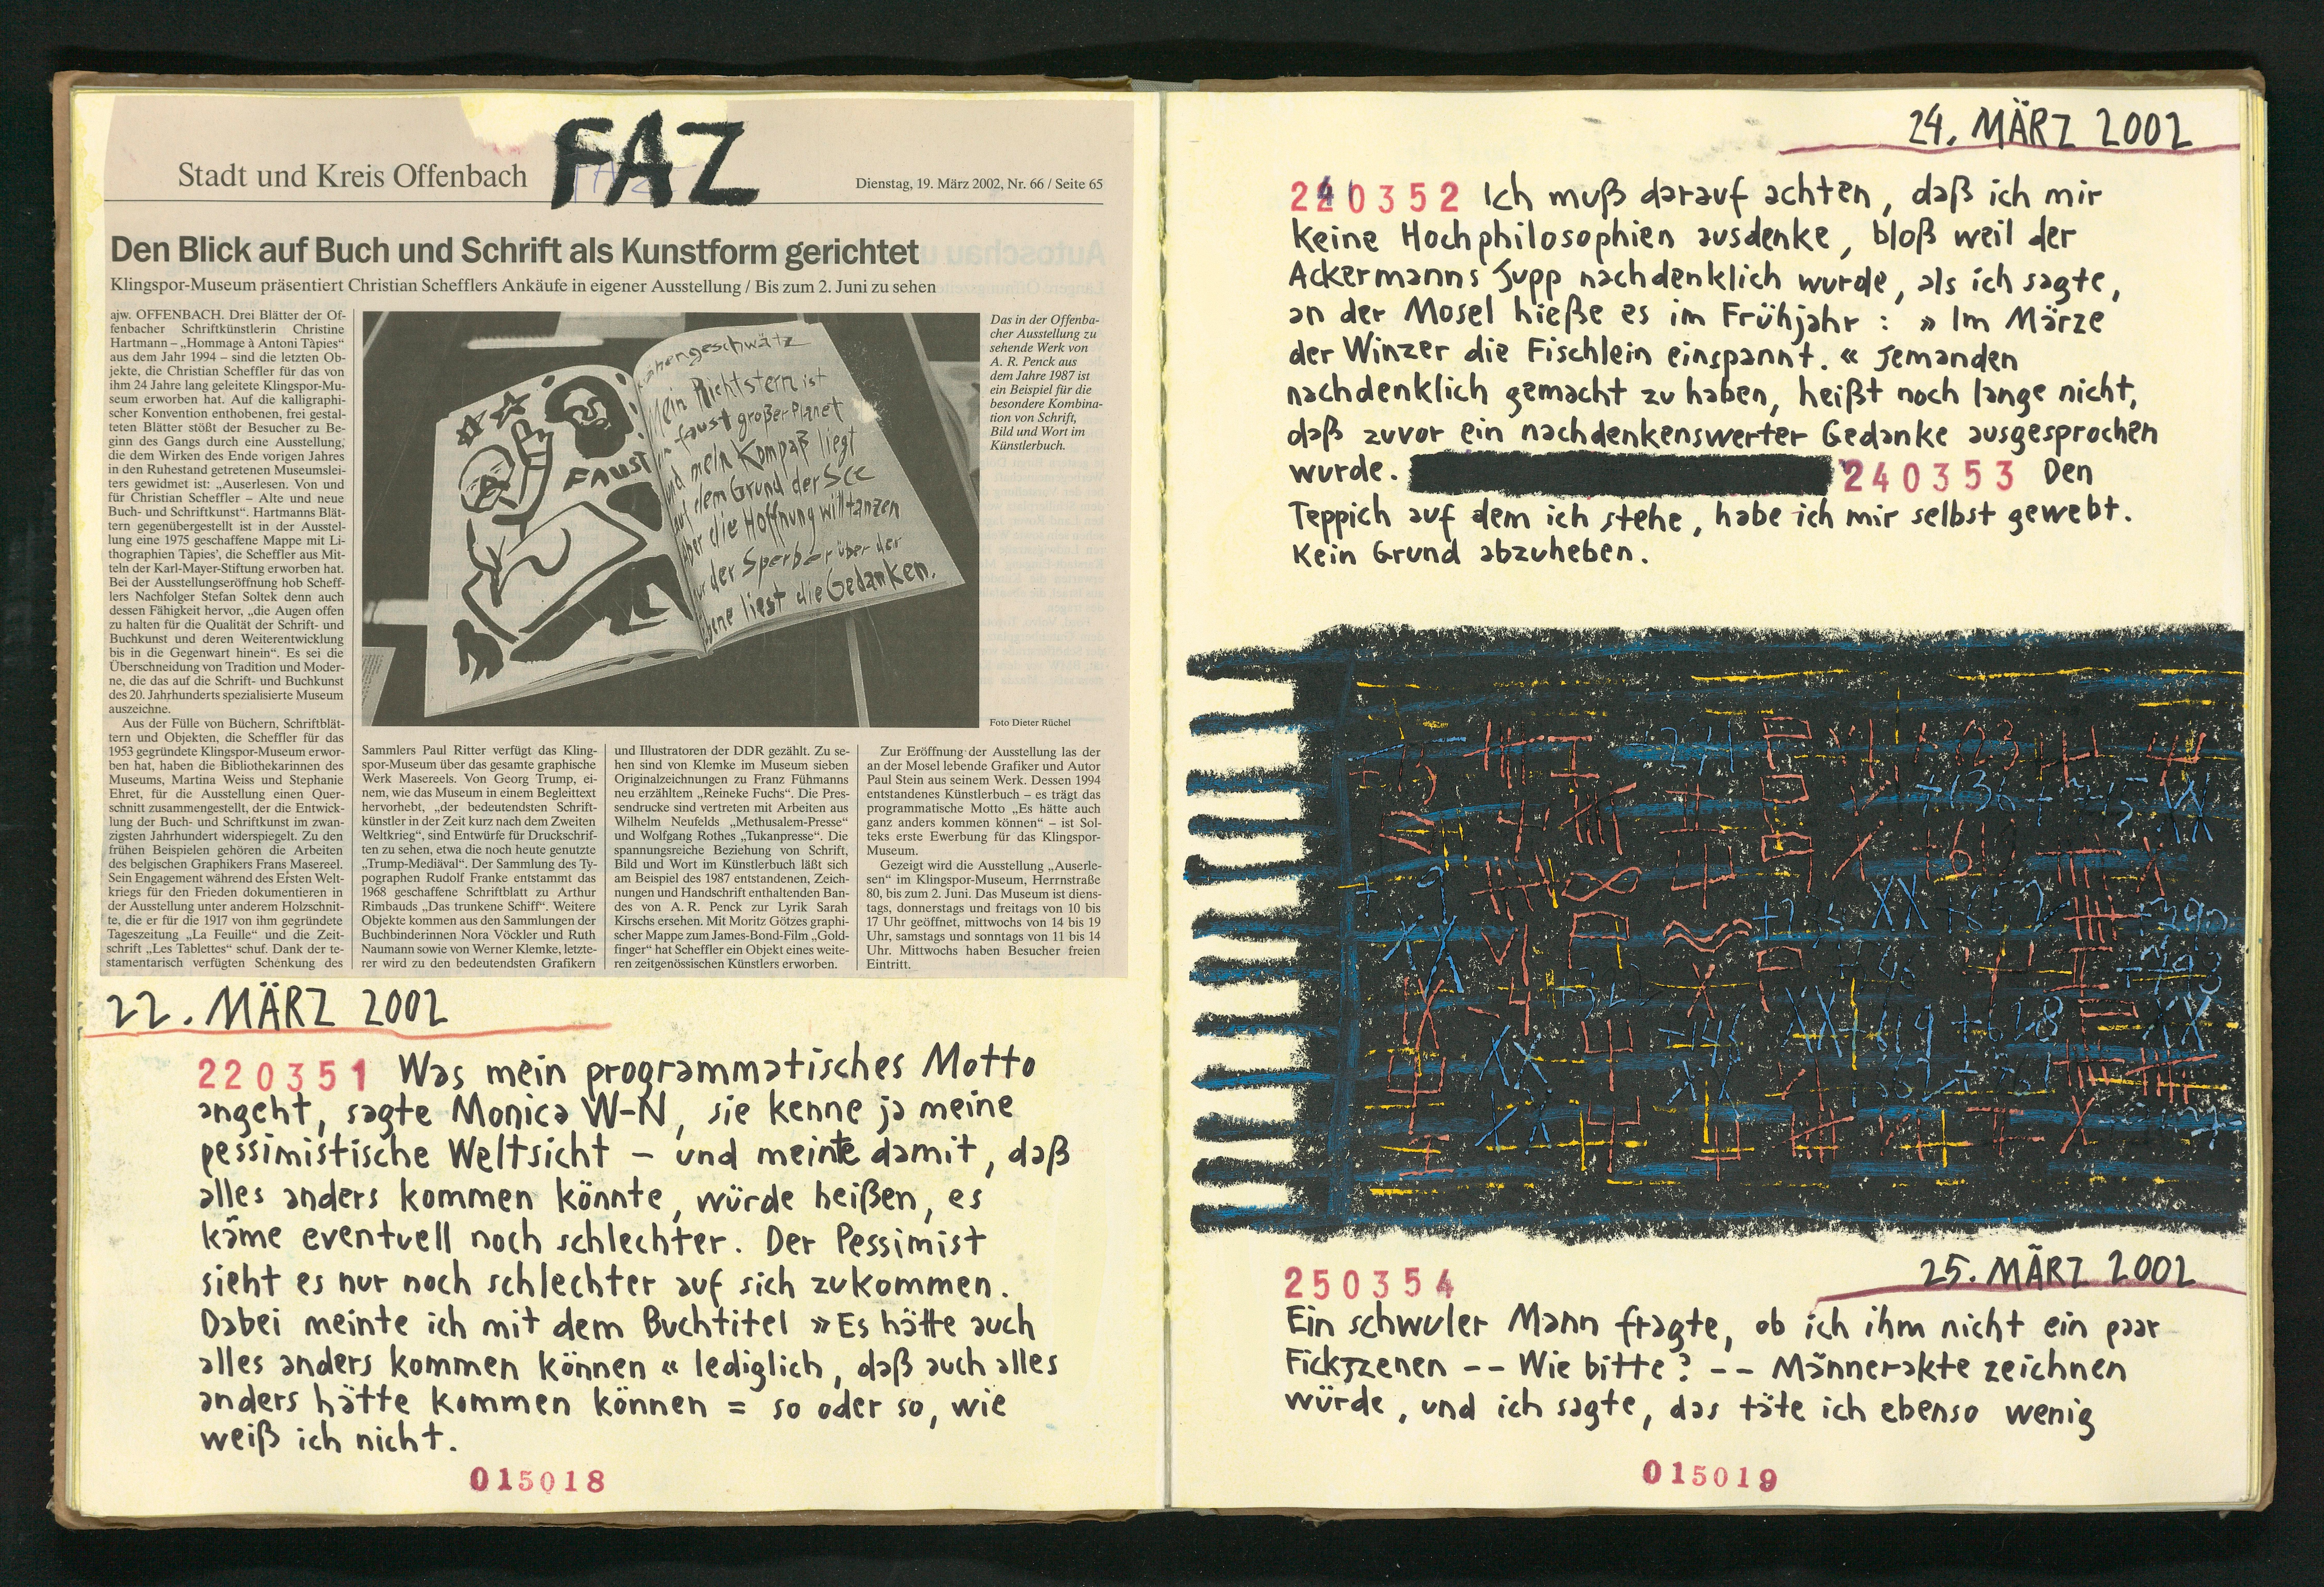 FAZ
Stadt und Kreis Offenbach
Dienstag, 19. März 2002, Nr. 66 / Seite 65
Den Blick auf Buch und Schrift als Kunstform gerichtet
Klingspor-Museum präsentiert Christian Schefflers Ankäufe in eigener Ausstellung / Bis zum 2. Juni zu sehen
ajw. OFFENBACH. Drei Blätter der Of-
fenbacher Schriftkünstlerin Christine
Hartmann – „Hommage à Antoni Tàpies“
aus dem Jahr 1994 – sind die letzten Ob-
jekte, die Christian Scheffler für das von
ihm 24 Jahre lang geleitete Klingspor-Mu-
seum erworben hat. Auf die kalligraphi-
scher Konvention enthobenen, frei gestal-
teten Blätter stößt der Besucher zu Be-
ginn des Gangs durch eine Ausstellung,
die dem Wirken des Ende vorigen Jahres
in den Ruhestand getretenen Museumslei-
ters gewidmet ist: „Auserlesen. Von und
für Christian Scheffler – Alte und neue
Buch- und Schriftkunst“. Hartmanns Blät-
tern gegenübergestellt ist in der Ausstel-
lung eine 1975 geschaffene Mappe mit Li-
thographien Tàpies’, die Scheffler aus Mit-
teln der Karl-Mayer-Stiftung erworben hat.
Bei der Ausstellungseröffnung hob Scheff-
lers Nachfolger Stefan Soltek denn auch
dessen Fähigkeit hervor, „die Augen offen
zu halten für die Qualität der Schrift- und
Buchkunst und deren Weiterentwicklung
bis in die Gegenwart hinein“. Es sei die
Überschneidung von Tradition und Moder-
ne, die das auf die Schrift- und Buchkunst
des 20. Jahrhunderts spezialisierte Museum
auszeichne.
Aus der Fülle von Büchern, Schriftblät-
tern und Objekten, die Scheffler für das
1953 gegründete Klingspor-Museum erwor-
ben hat, haben die Bibliothekarinnen des
Museums, Martina Weiss und Stephanie
Ehret, für die Ausstellung einen Quer-
schnitt zusammengestellt, der die Entwick-
lung der Buch- und Schriftkunst im zwan-
zigsten Jahrhundert widerspiegelt. Zu den
frühen Beispielen gehören die Arbeiten
des belgischen Graphikers Frans Masereel.
Sein Engagement während des Ersten Welt-
kriegs für den Frieden dokumentieren in
der Ausstellung unter anderem Holzschnit-
te, die er für die 1917 von ihm gegründete
Tageszeitung „La Feuille“ und die Zeit-
schrift „Les Tablettes“ schuf. Dank der te-
stamentarisch verfügten Schenkung des
Sammlers Paul Ritter verfügt das Kling-
spor-Museum über das gesamte graphische
Werk Masereels. Von Georg Trump, ei-
nem, wie das Museum in einem Begleittext
hervorhebt, „der bedeutendsten Schrift-
künstler in der Zeit kurz nach dem Zweiten
Weltkrieg“, sind Entwürfe für Druckschrif-
ten zu sehen, etwa die noch heute genutzte
„Trump-Mediäval“. Der Sammlung des Ty-
pographen Rudolf Franke entstammt das
1968 geschaffene Schriftblatt zu Arthur
Rimbauds „Das trunkene Schiff“. Weitere
Objekte kommen aus den Sammlungen der
Buchbinderinnen Nora Vöckler und Ruth
Naumann sowie von Werner Klemke, letzte-
rer wird zu den bedeutendsten Grafikern
und Illustratoren der DDR gezählt. Zu se-
hen sind von Klemke im Museum sieben
Originalzeichnungen zu Franz Fühmanns
neu erzähltem „Reineke Fuchs“. Die Pres-
sendrucke sind vertreten mit Arbeiten aus
Wilhelm Neufelds „Methusalem-Presse“
und Wolfgang Rothes „Tukanpresse“. Die
spannungsreiche Beziehung von Schrift,
Bild und Wort im Künstlerbuch läßt sich
am Beispiel des 1987 entstandenen, Zeich-
nungen und Handschrift enthaltenden Ban-
des von A. R. Penck zur Lyrik Sarah
Kirschs ersehen. Mit Moritz Götzes graphi-
scher Mappe zum James-Bond-Film „Gold-
finger“ hat Scheffler ein Objekt eines weite-
ren zeitgenössischen Künstlers erworben.
Zur Eröffnung der Ausstellung las der
an der Mosel lebende Grafiker und Autor
Paul Stein aus seinem Werk. Dessen 1994
entstandenes Künstlerbuch – es trägt das
programmatische Motto „Es hätte auch
ganz anders kommen können“ – ist Sol-
teks erste Ewerbung für das Klingspor-
Museum.
Gezeigt wird die Ausstellung „Auserle-
sen“ im Klingspor-Museum, Herrnstraße
80, bis zum 2. Juni. Das Museum ist diens-
tags, donnerstags und freitags von 10 bis
17 Uhr geöffnet, mittwochs von 14 bis 19
Uhr, samstags und sonntags von 11 bis 14
Uhr. Mittwochs haben Besucher freien
Eintritt.
FAUST
Mein Richtstern ist
faust großer Planet
und mein Kompaß liegt
auf dem Grund der See
aber die Hoffnung will tanzen
der Sperber über der
Ebene liest die Gedanken.
Das in der Offenba-
cher Ausstellung zu
sehende Werk von
A. R. Penck aus
dem Jahre 1987 ist
ein Beispiel für die
besondere Kombina-
tion von Schrift,
Bild und Wort im
Künstlerbuch.
Foto Dieter Rüchel
22. MÄRZ 2002
220351 Was mein programmatisches Motto
angeht, sagte Monica W-N, sie kenne ja meine
pessimistische Weltsicht – und meinte damit, daß
alles anders kommen könnte, würde heißen, es
käme eventuell noch schlechter. Der Pessimist
sieht es nur noch schlechter auf sich zukommen.
Dabei meinte ich mit dem Buchtitel »Es hätte auch
alles anders kommen können« lediglich, daß auch alles
anders hätte kommen können = so oder so, wie
weiß ich nicht.
015018
24. MÄRZ 2002
240352 Ich muß darauf achten, daß ich mir
keine Hochphilosophien ausdenke, bloß weil der
Ackermanns Jupp nachdenklich wurde, als ich sagte,
an der Mosel hieße es im Frühjahr: »Im Märze
der Winzer die Fischlein einspannt.« Jemanden
nachdenklich gemacht zu haben, heißt noch lange nicht,
daß zuvor ein nachdenkenswerter Gedanke ausgesprochen
wurde. 240353 Den
Teppich auf dem ich stehe, habe ich mir selbst gewebt.
Kein Grund abzuheben.
25. MÄRZ 2002
250354
Ein schwuler Mann fragte, ob ich ihm nicht ein paar
Fickszenen -- Wie bitte? -- Männerakte zeichnen
würde, und ich sagte, das täte ich ebenso wenig
015019